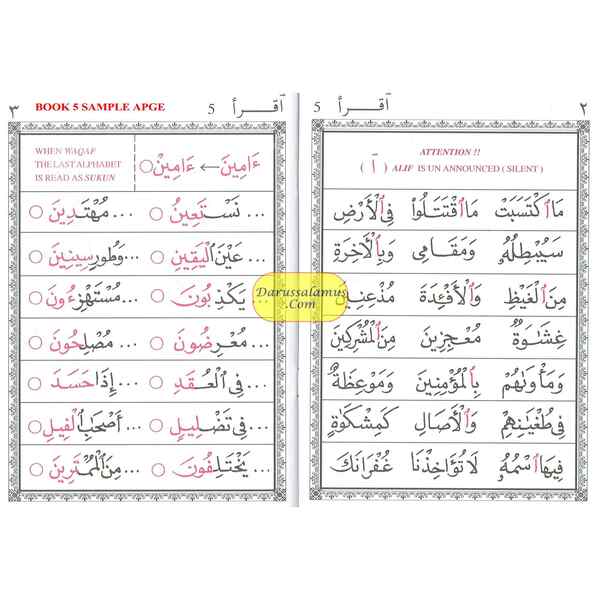 5 اٰقرأ ٢
ATTENTION !!
( آ ) ALIF IS UN ANNOUNCED ( SILENT )
مَااكْتَسَبَتْ مَااقْتَتَلُوا فِى الْأَرْضِ
سَيُبْطِلُهُۥ وَمَقَامِى وَبِالْآخِرَةِ
مِنَ الْغَيْظِ وَالْأَفْئِدَةَ مُذْعِنِينَ
غِشَاوَةٌ مُعْجِزِينَ مِنَ الْمُشْرِكِينَ
وَمَأْوَاهُمْ بِالْمُؤْمِنِينَ وَمَوْعِظَةٌ
فِى طُغْيَانِهِمْ وَالْآصَالِ كَمِشْكَوٰةٍ
فِيهَا اسْمُهُۥ لَا تُؤَاخِذْنَا غُفْرَانَكَ
٣ BOOK 5 SAMPLE APGE 5 اٰقرأ
WHEN WAQAF
THE LAST ALPHABET
IS READ AS SUKUN
ءَامِينَ ← ءَامِينْ
... نَسْتَعِينُ ... مُهْتَدِينَ
... عَيْنَ الْيَقِينِ ... وَطُورِ سِينِينَ
... يُكَذِّبُونَ ... مُسْتَهْزِءُونَ
Darussalamus
.Com
... مُعْرِضُونَ ... مُصْلِحُونَ
... فِى الْعُقَدِ ... إِذَا حَسَدَ
... فِى تَضْلِيلٍ ... أَصْحَابِ الْفِيلِ
... يَخْتَلِفُونَ ... مِنَ الْمُمْتَرِينَ